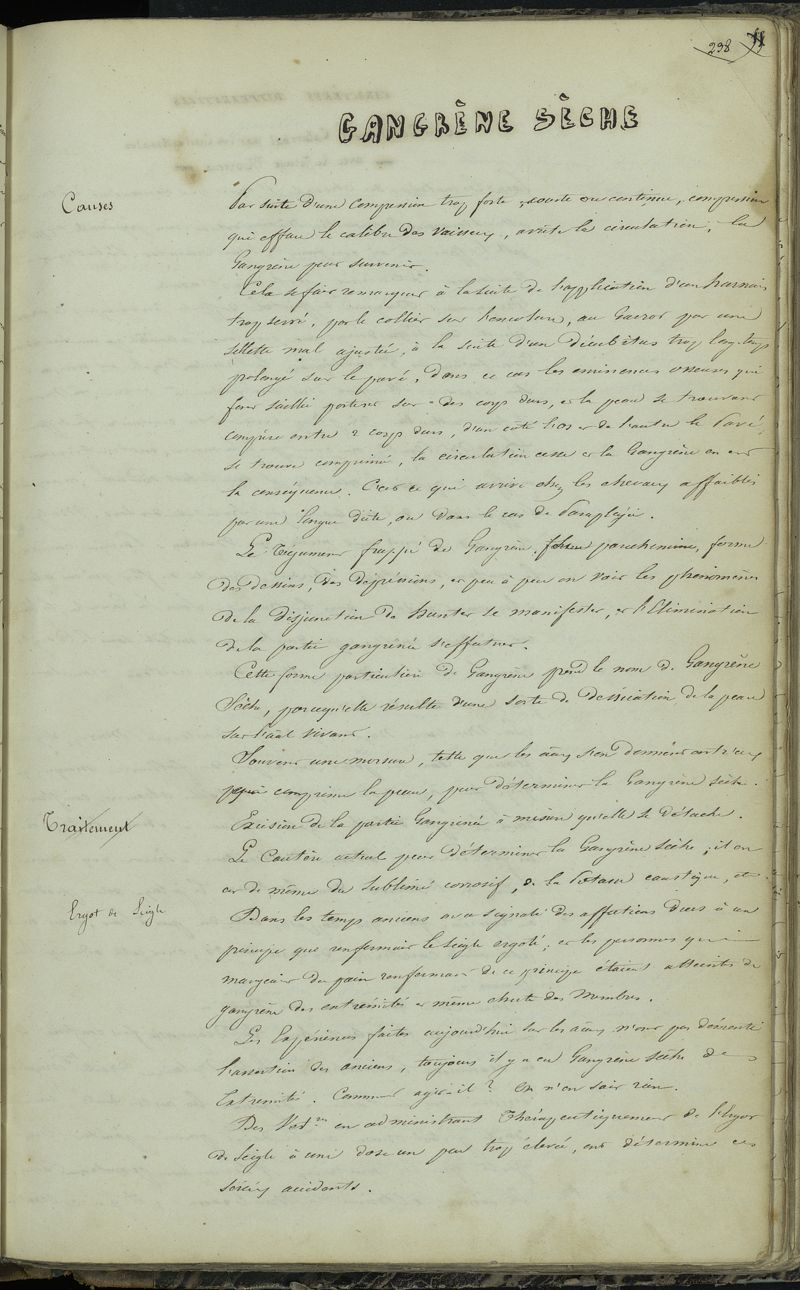 298
GANGRÈNE SÈCHE
Causes
Par suite d'une compression trop forte, courte ou continue, compression
qui efface le calibre des vaisseaux, arrête la circulation, la
Gangrène peut survenir.
Cela se fait remarquer à la suite de l'application d'un harnais
trop serré, par le collier sur l'encolure, au Garrot par une
sellette mal ajustée, à la suite d'un décubitus trop longtemps
prolongé sur le pavé, Dans ce cas les éminences osseuses qui
font saillie portent sur des corps durs, et la peau se trouvant
comprise entre 2 corps durs, d'un côté l'os et de l'autre le Pavé,
se trouve comprimée, la circulation cesse et la Gangrène en est
la conséquence. C'est ce qui arrive chez les chevaux affaiblis
par une longue diète, ou dans le cas de Paraplégie.
Le Tégument frappé de Gangrène, parcheminé, forme
des dessins, des dépressions, et peu à peu on voit les phénomènes
de la Disjonction de Hunter se manifester, et l'Elimination
de la partie gangrenée s'effectuer.
Cette forme particulière de Gangrène prend le nom de Gangrène
Sèche, parcequ'elle résulte d'une sorte de Dessication de la peau
sur l'aal vivant.
Souvent une morsure, telle que les aaux s'en donnent entr'eux
qui comprime la peau, peut déterminer la Gangrène sèche.
Traitement
Excision de la partie Gangrenée à mesure qu'elle se détache.
Le Cautère actuel peut déterminer la Gangrène Sèche ; il en
est de même du Sublimé corrosif, de la Potasse caustique, etc.
Ergot de Seigle
Dans les temps anciens on a signalé des affections dues à un
principe que renfermait le Seigle ergoté ; et les personnes qui
mangeaient du pain renfermant de ce principe étaient atteints de
gangrène des extrémités et même chute des Membres.
Les Expériences faites aujourd'hui sur les aaux n'ont pas démenti
l'assertion des anciens, toujours il y a eu Gangrène Sèche des
Extrémités. Comment agit-il ? On n'en sait rien.
Des Vétres en administrant Thérapeutiquement de l'Ergot
de Seigle à une dose un peu trop élevée, ont déterminé ces
accidents.